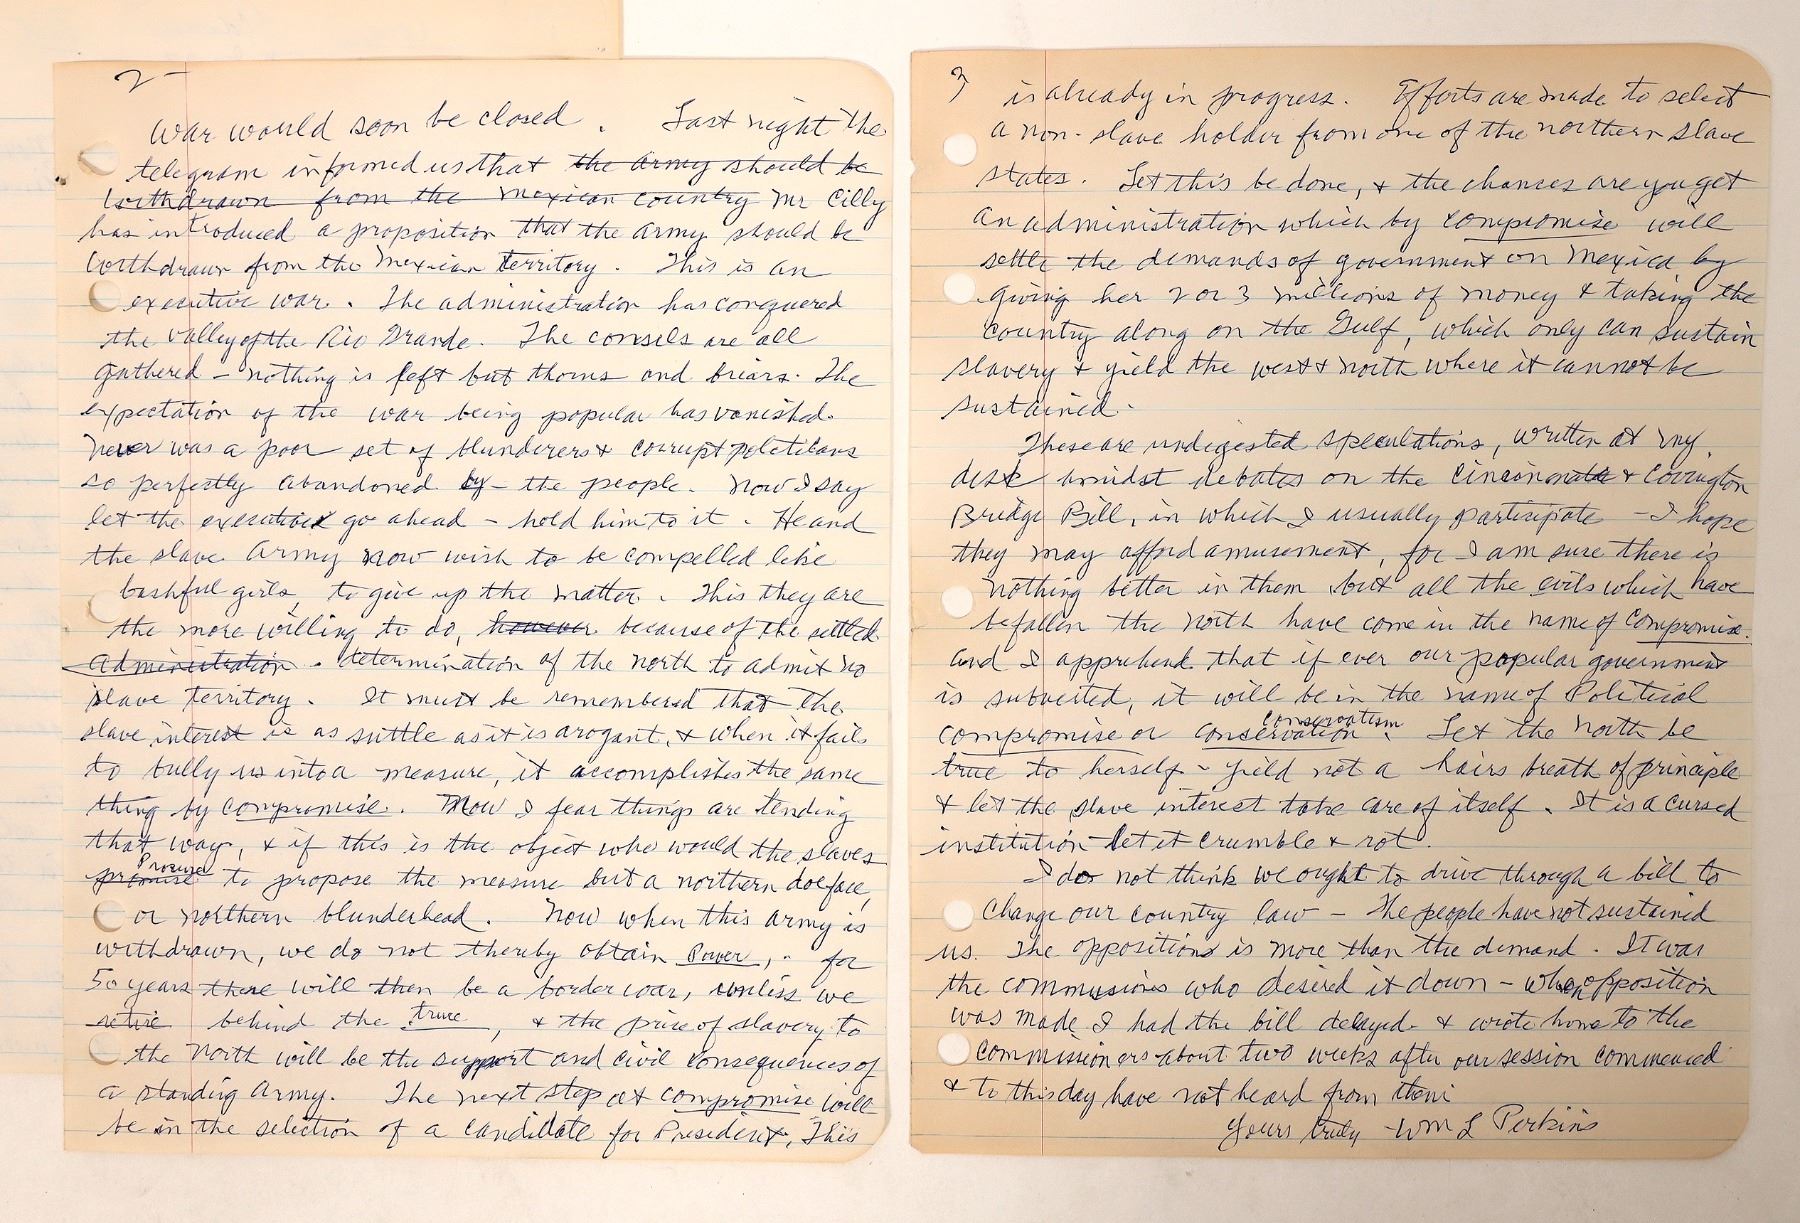 2-
War would soon be closed. Last night the
telegram informed us that ~~the army should be~~
~~withdrawn from the mexican country~~ Mr Cilly
has introduced a proposition that the army should be
withdrawn from the Mexican territory. This is an
executive war. The administration has conquered
the valley of the Rio Grande. The consels are all
gathered - nothing is left but thorns and briars. The
expectation of the war being popular has vanished.
Never was a poor set of blunderers & corrupt politicans
so perfectly abandoned by - the people. Now I say
let the executive go ahead - hold him to it. He and
the slave army now wish to be compelled like
bashful girls, to give up the matter. This they are
the more willing to do, ~~however~~ because of the settled
~~administration~~. determination of the north to admit no
slave territory. It must be remembered that the
slave interest is as suttle as it is arogant, & when it fails
to bully us into a measure, it accomplishes the same
thing by compromise. Now I fear things are tending
that way, & if this is the object who would the slaves
~~promise~~ Procure to propose the measure but a northern doeface,
or northern blunderhead. Now when this army is
withdrawn, we do not thereby obtain Power, - for
50 years there will then be a border war, unless we
retire behind the true, & the price of slavery to
the North will be the support and civil consequences of
a standing army. The next step at compromise will
be in the selection of a candidate for President, This
3
is already in progress. Efforts are made to select
a non-slave holder from one of the northern slave
states. Let this be done, & the chances are you get
an administration which by compromise will
settle the demands of government on Mexico, by
giving her 2 or 3 millions of money & taking the
country along on the Gulf, which only can sustain
slavery & yield the west & north where it cannot be
sustained.
These are undigested speculations, written at my
desk amidst debates on the Cincinnati & Covington
Bridge Bill, in which I usually participate - I hope
they may afford amusement, for I am sure there is
nothing better in them but all the evils which have
befallen the North have come in the name of Compromise.
and I apprehend that if ever our popular government
is subverted, it will be in the name of Political
compromise or conservation conservatism. Let the North be
true to herself - yield not a hairs breath of principle
& let the slave interest take care of itself. It is a cursed
institution - let it crumble & rot.
I do not think we ought to drive through a bill to
change our country law - The people have not sustained
us. The opposition is more than the demand. It was
the commissions who desired it down - When opposition
was made I had the bill delayed & wrote home to the
commissioners about two weeks after our session commenced
& to this day have not heard from them
Yours truly - Wm L Perkins